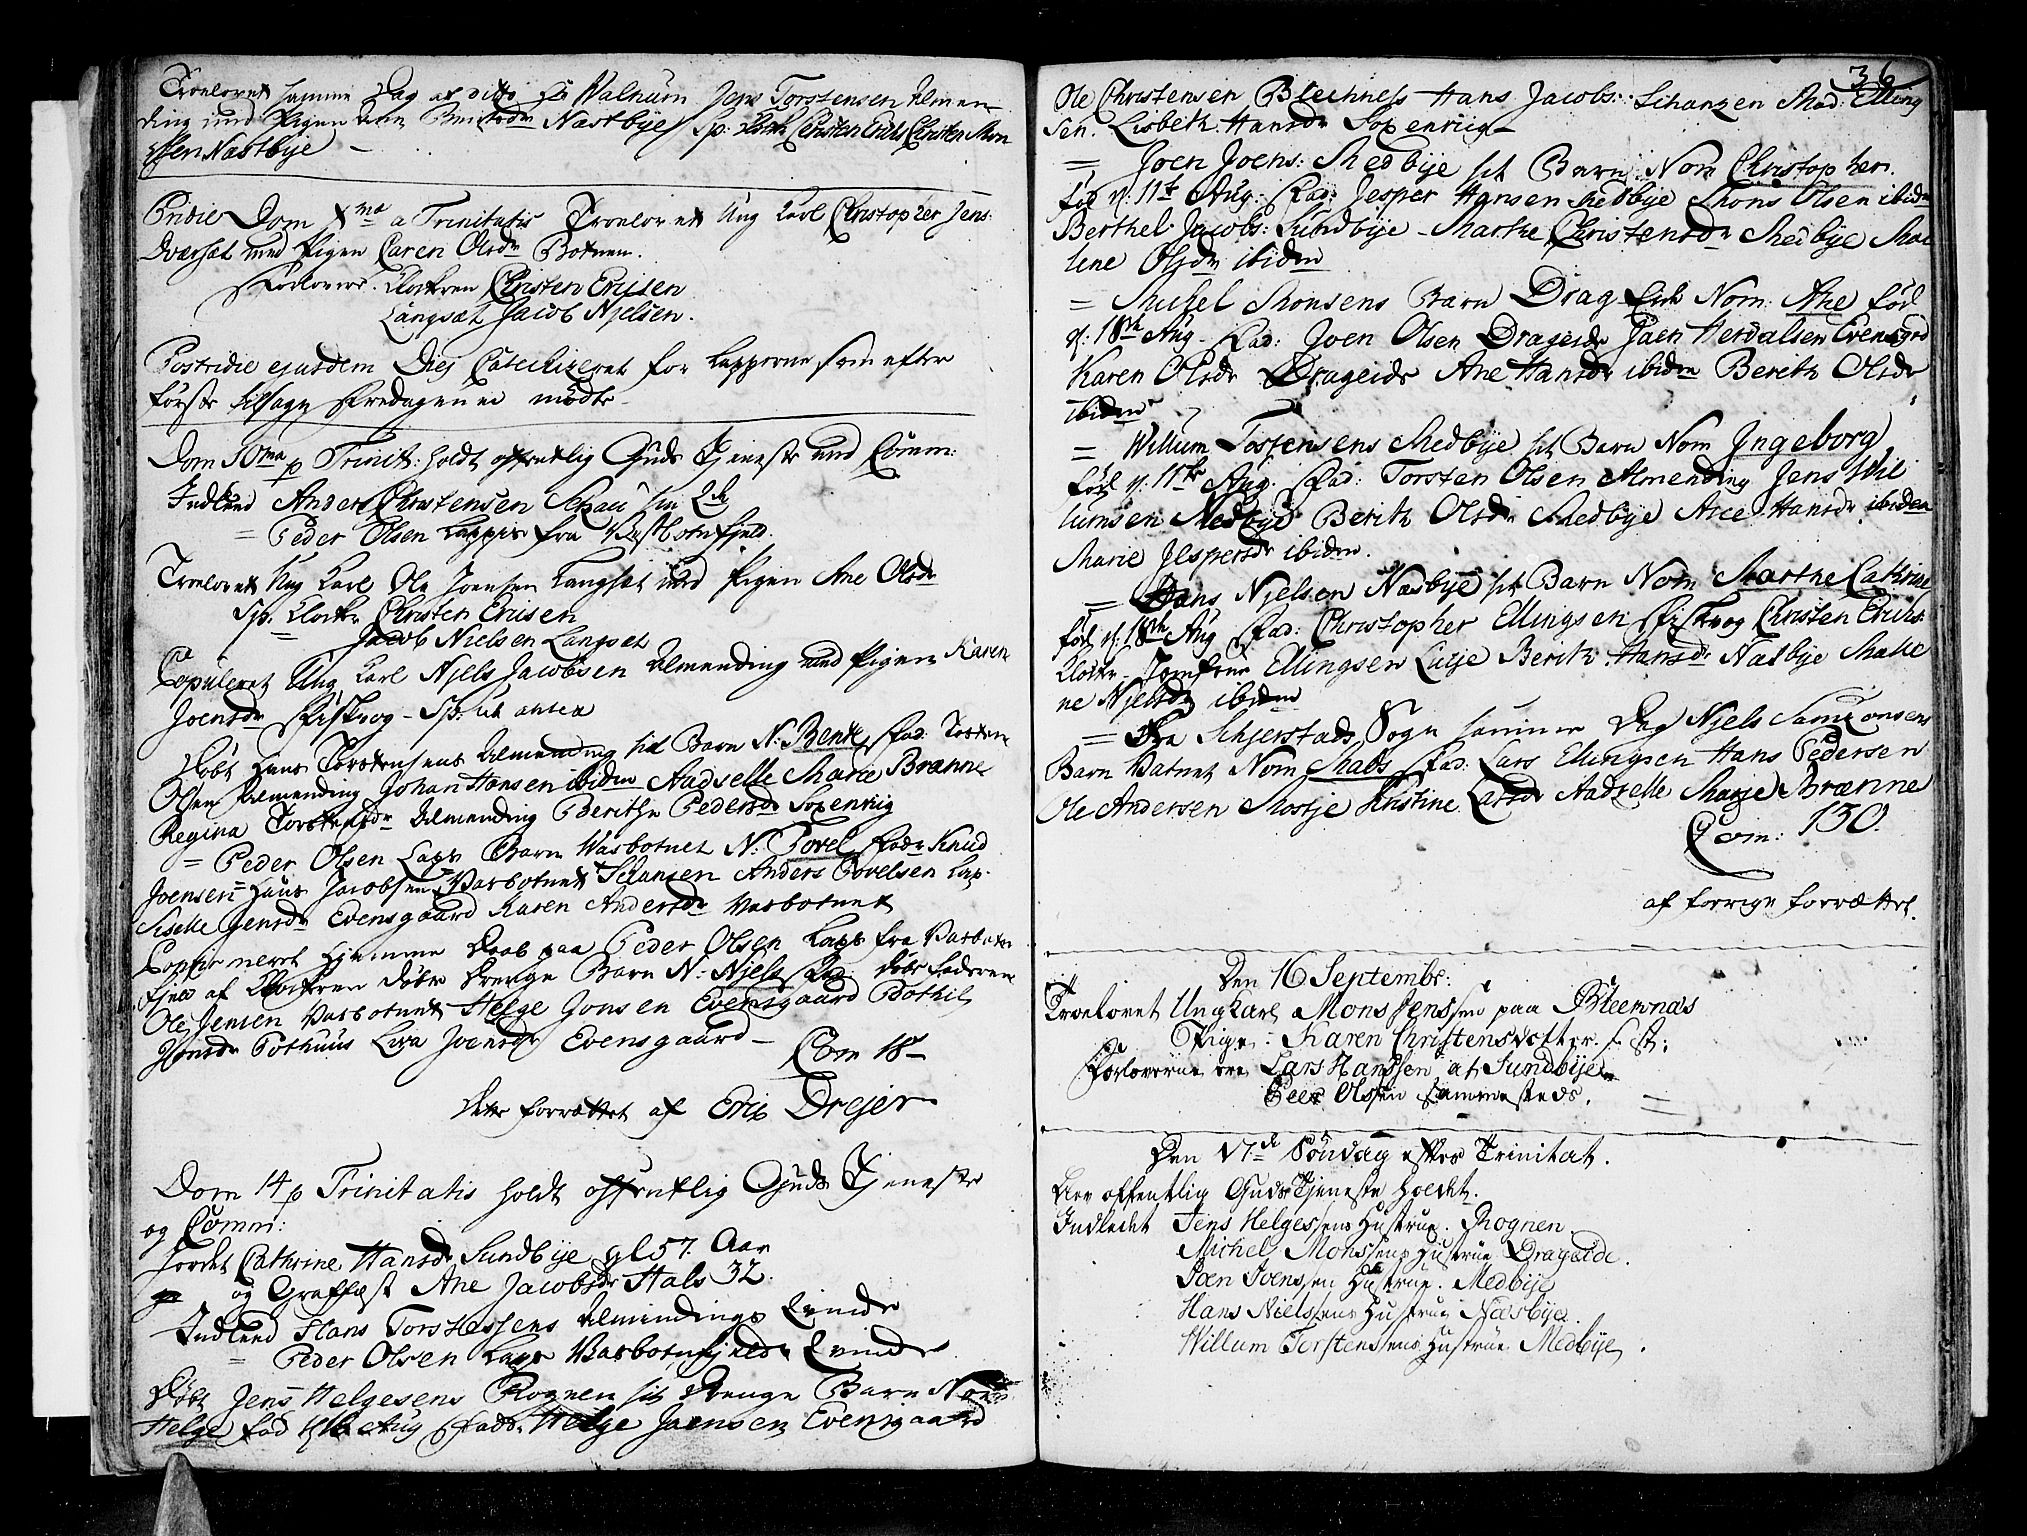 Troelovet samme Dag af ditto Hr Walnum Jens Torstensen Almen
ding med Pigen Nastbye Sp: Christen Erichs Christen Mon
sen Nastbye
Pridie Dom Xma a Trinitatis Troelovet Ung Karl Christopher Jens:
Dværset med Pigen Caren Olsdr Botnen.
Forlovere. Klockeren Christen Erisen
Langsæt Jacob Njelsen.
Postridie ejusdem Diej Catechizeret for Lapperne som efter
første tilsagn Fredagen ei mødte
Dom 10ma p Trinit: holdt offentlig Guds Tjeneste med Comm:
Indleed Anders Christensen Schau
= Peder Olsen Lappis fra Vesbotnfjeld.
Troelovet Ung Karl Ole Joensen Langset med Pigen Ane Olsdr
Sp: Klocker Christen Erisen
= Jacob Nielsen Langset
Copuleret Ung Karl Njels Jacobsen Almending med Pigen Karen
Joensdr Fiskvog - Sp: ut antea
Døbt Hans Torstensens Almending sit Barn N: Bente Fad: Torsten
Olsen Almending Johan Hansen ibidem Aadselle Marie Brænne
Regina Torstensdr Almending Berithe Pedersdr Soxenviig
= Peder Olsen Lap Barn Wasbotnet N: Povel Fadr Knud
Joensen = Hans Jacobsen Vasbotnet Schansen Anders Povelsen Lap.
Siselle Jensdr Evensgaard Karen Andersdr Vasbotnet
Confirmeret Hiemme Daab paa Peder Olsen Lap fra Vasbotn
fjeld af Klockeren døbt Drenge Barn N: Njels Fad: døbt faderen
Ole Jensen Vasbotnet Helge Jonsen Evensgaard Bothil
Jensdr Pothuus Liva Joensdr Evensgaard -
Com 18 -
Dette forrættet af Eric Drejer
Dom 14 p Trinitatis holdt offentlig Guds Tjeneste
og Comm:
Jordet Cathrine Hansdr Sundbye gl 57. Aar
og Graffæst Ane Jacobsdr Hals 32.
Indleed Hans Torstessens Almindings Qvinde
= Peder Olsen Lap Vasbotnfjelds Qvinde
Døbt Jens Helgesens Rognen sit Drenge Barn Nom
Helge fød Aug Fadr. Helge Joensen Evensgaard
36
Ole Christensen Blechness Hans Jacobs: Schanzen Mad: Elling
sen. Lisbeth Hansdr Soxenviig -
= Joen Joens: Medbye sit Barn Nom Christopher.
fød d: 11te Aug: Fad: Jesper Hansen Medbye Mons Olsen ibidm
Berthel Jacobs: Sundbye - Marthe Christensdr Medbye Mal
lene Olsdr ibidm
= Michel Monsens Barn Drag Nom: Ane fød
d: 18de Aug - Fad: Joen Olsen Drageide Joen Herdalsen Evensgrd
Karen Olsdr Drageide Ane Hansdr ibidm Berith Olsdr
ibidem
= Willum Tostensens Medbye sit Barn Nom Jngeborg
fød d: 11te Aug. Fad: Torsten Olsen Almending Jens Wil
lumsen Medbye Berith Olsdr Medbye Ane Hansdr ibidem
Marie Jespersdr ibidem.
= Hans Njelsen Nasbye sit Barn Nom Marthe Cathrine
fød d: 18de Aug Fad: Christopher Ellingsen Fiskvog Christen Erichs:
Klocker Jomfrue Ellingsen Lucje Berith Hansdr Nasbye Malle
ne Njelsdr ibidem
= Fra Schjerstads Sogn samme Dag Njels Samzonsens
Barn Vatnet Nom Mads Fad: Lars Ellingsen Hans Pedersen
Ole Andersen Mostje Kristine Larsdr Aadselle Marje Brænne
Com: 130.
af forrige forrættet.
Den 16 Septembr:
Troelovet Ungkarl Mons Jenssen paa Bleeknæs
Pige: Karen Christensdotter
Forloverne ere Lars Hanssen at Sundbye
Peer Olssen sammesteds.
Den 17de Søndag efter Trinitat.
Blev offentlig Guds Tjeneste holdet.
Indledet Jens Helgessens Hustrue. Rognen
Michel Monssens Hustrue Drageide.
Joen Joenssen Hustrue. Medbye
Hans Nielssens Hustrue Næsbye.
Willum Torstenssens Hustrue Medbye.